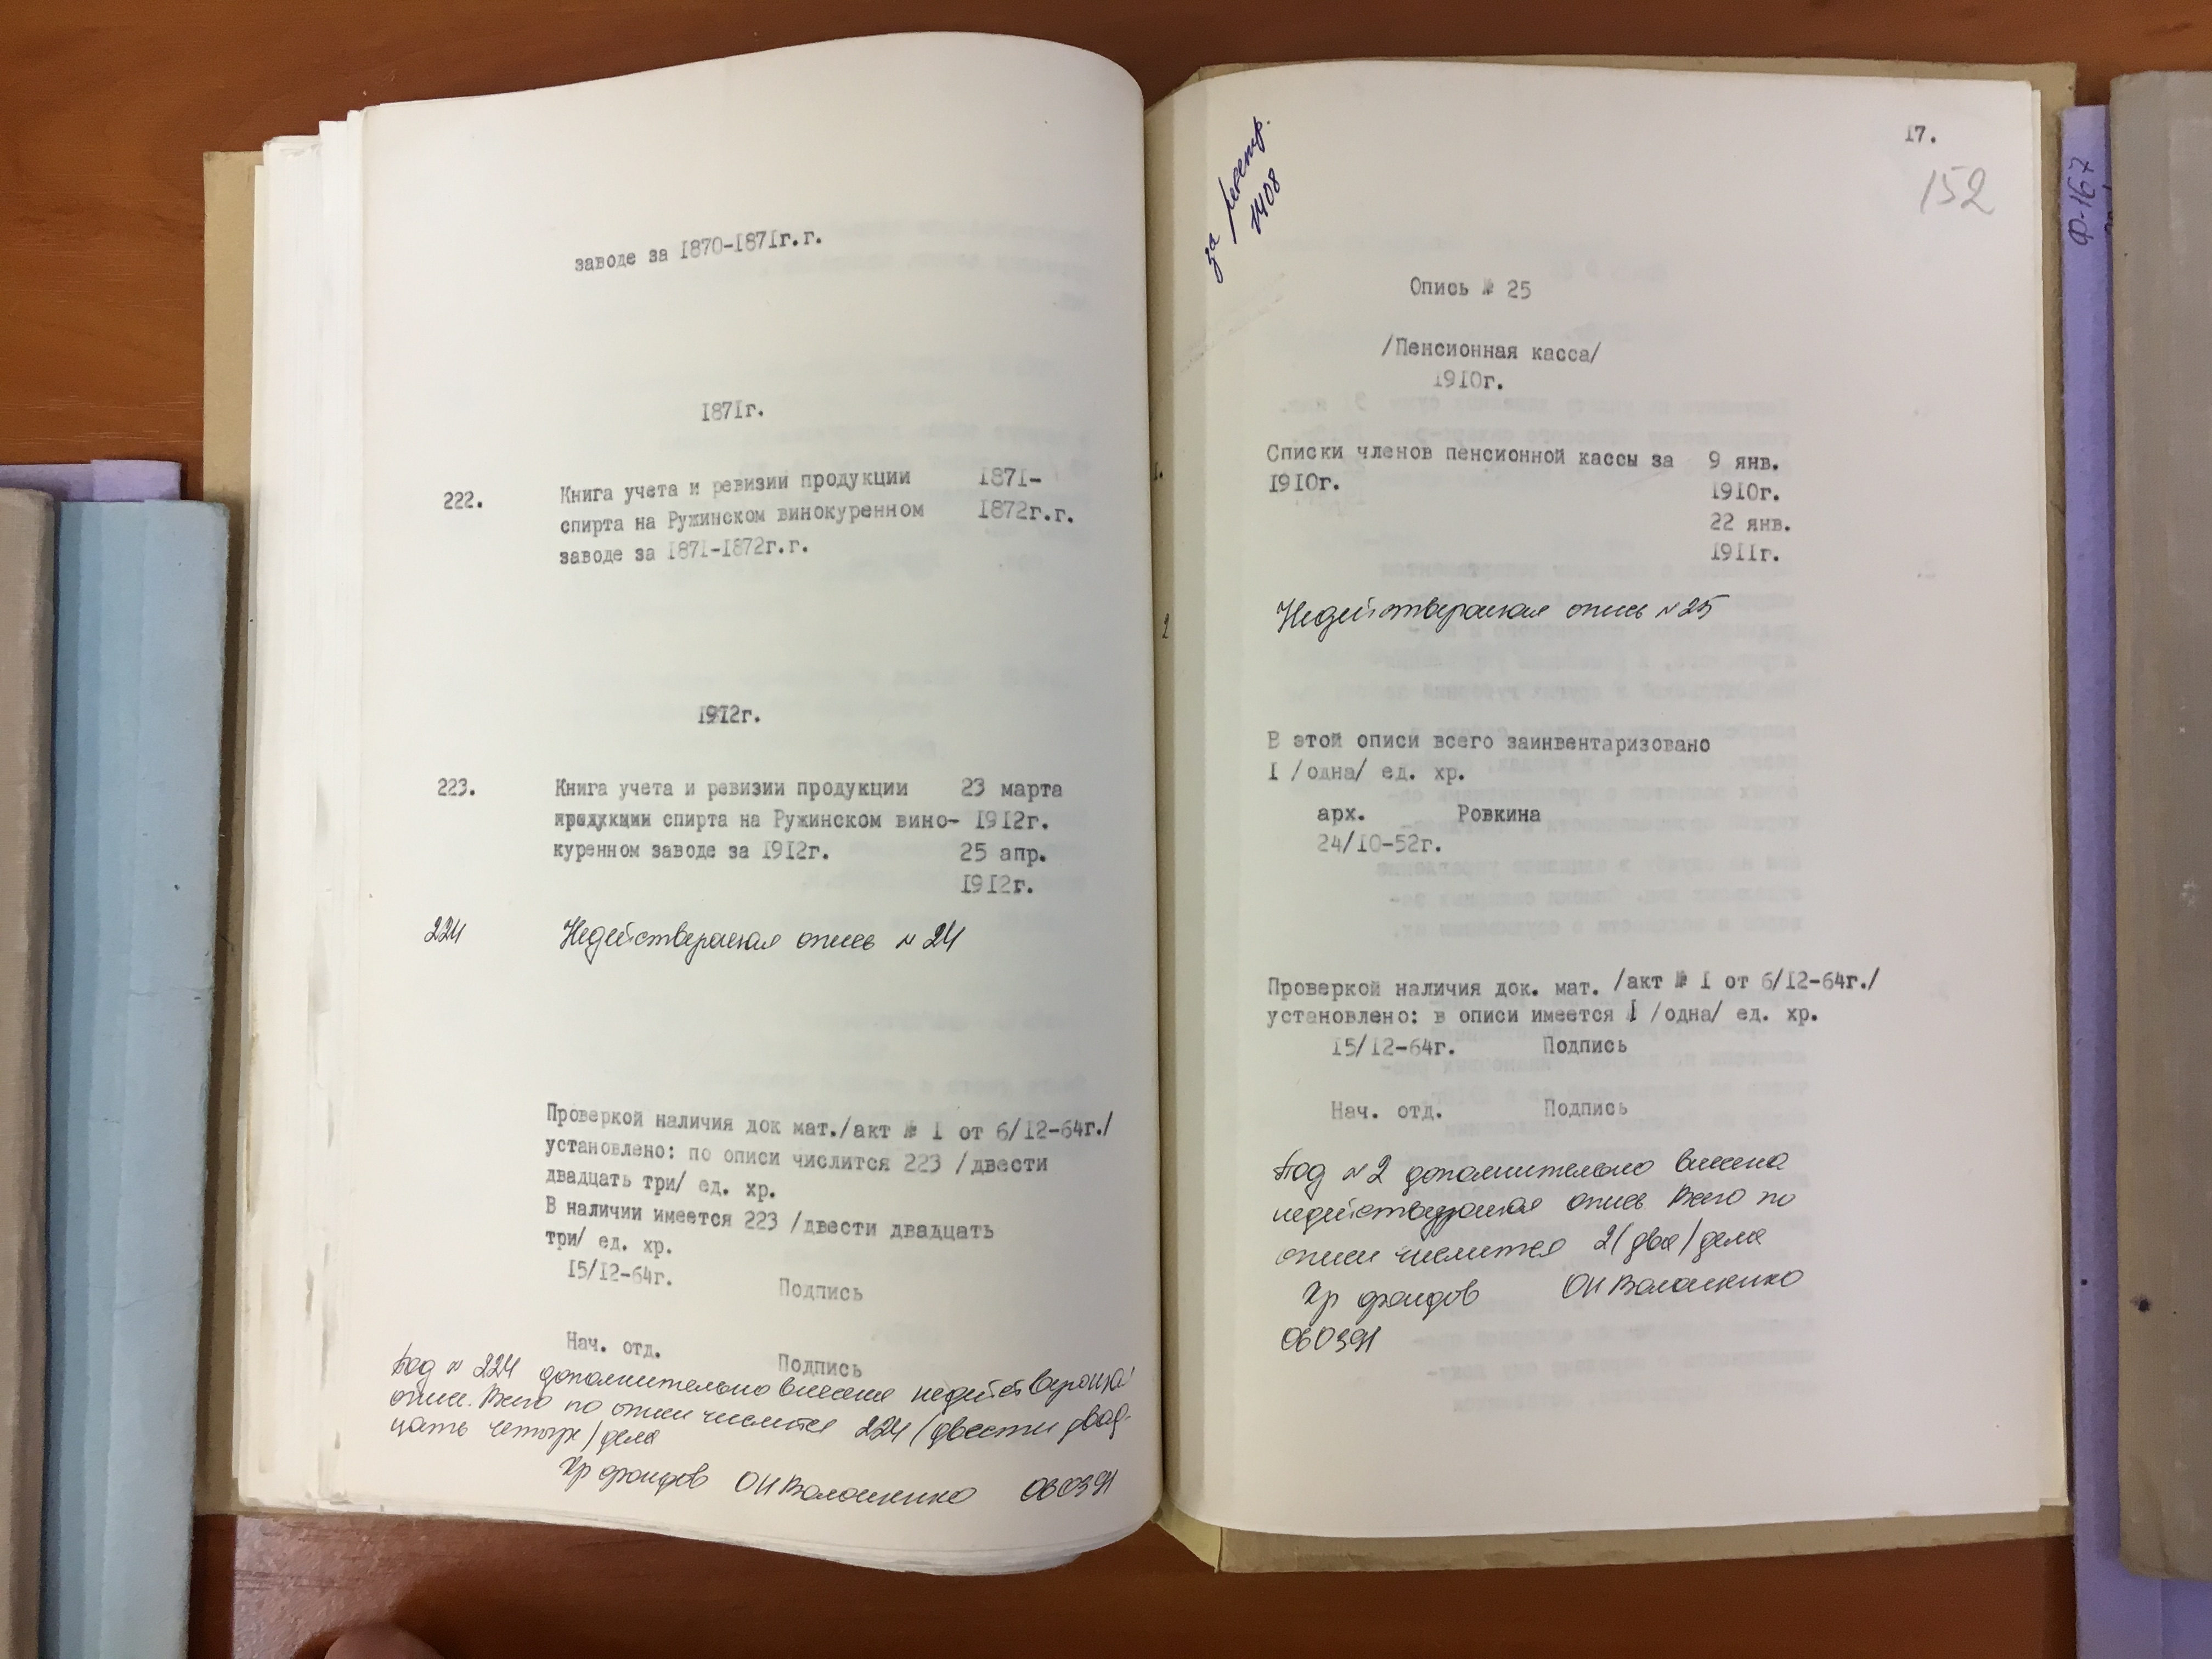 заводе за I870-I87Iг.г.
I87Iг.
222. Книга учета и ревизии продукции I87I-
спирта на Ружинском винокуренном I872г.г.
заводе за I87I-I872г.г.
I9I2г.
223. Книга учета и ревизии продукции 23 марта
продукции спирта на Ружинском вино- I9I2г.
куренном заводе за I9I2г. 25 апр.
I9I2г.
224 Недействующая опись № 24
Проверкой наличия док мат./акт № I от 6/I2-64г./
установлено: по описи числится 223 /двести
двадцать три/ ед. хр.
В наличии имеется 223 /двести двадцать
три/ ед. хр.
I5/I2-64г. Подпись
Нач. отд. Подпись
Под № 224 дополнительно внесена
описи. Всего по описи числится 224 (двести двад-
цать четыре) дела
Хр фондов 060391
за
1408
I7.
152
Опись № 25
/Пенсионная касса/
I9I0г.
I. Списки членов пенсионной кассы за 9 янв.
I9I0г. I9I0г.
22 янв.
I9IIг.
2 Недействующая опись № 25
В этой описи всего заинвентаризовано
I /одна/ ед. хр.
арх. Ровкина
24/I0-52г.
Проверкой наличия док. мат. /акт № I от 6/I2-64г./
установлено: в описи имеется I /одна/ ед. хр.
I5/I2-64г. Подпись
Нач. отд. Подпись
Под № 2 дополнительно внесена
недействующая опись Всего по
описи числится 2 (два) дела
Хр фондов
060391
Ф-167